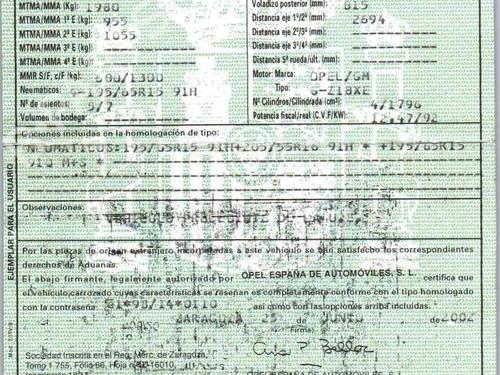 MTMA/MMA (Kg): 1980
MTMA/MMA 1º E (kg): 955
MTMA/MMA 2º E (kg): 1055
MTMA/MMA 3º E (kg):
MTMA/MMA 4º E (kg):
MMR S/F, c/F (kg): 600/1300
Neumáticos: 4-195/65R15 91H
Nº de asientos: 5/7
Volumen de bodega:
Voladizo posterior (mm): 615
Distancia eje 1º/2º (mm): 2694
Distancia eje 2º/3º (mm):
Distancia eje 3º/4º (mm):
Distancia 5ª rueda/ult. (mm):
Motor: Marca: OPEL/GM
Tipo: G-Z18XE
Nº Cilindros/Cilindrada (cm³): 4/1796
Potencia fiscal/real (C.V.F/KW): 12,47/92
Opciones incluidas en la homologación de tipo:
NEUMATICOS:195/65R15 91H+205/55R16 91H * +195/65R15
91Q M+S *
EJEMPLAR PARA EL USUARIO
Observaciones:
Por las piezas de origen extranjero incorporadas a este vehículo se han satisfecho los correspondientes
derechos de Aduanas.
El abajo firmante, legalmente autorizado por OPEL ESPAÑA DE AUTOMÓVILES, S. L. certifica que
el vehículo carrozado cuyas características se reseñan es completamente conforme con el tipo homologado
con la contraseña e1*98/14*0110 así como con las opciones arriba incluidas.
ZARAGOZA 25 de JUNIO de 2002
Firma:
Sociedad Inscrita en el Reg. Merc. de Zaragoza,
Tomo 1.755, Folio 66, Hoja nº Z-16010,
OPEL ESPAÑA DE AUTOMÓVILES, S. L.